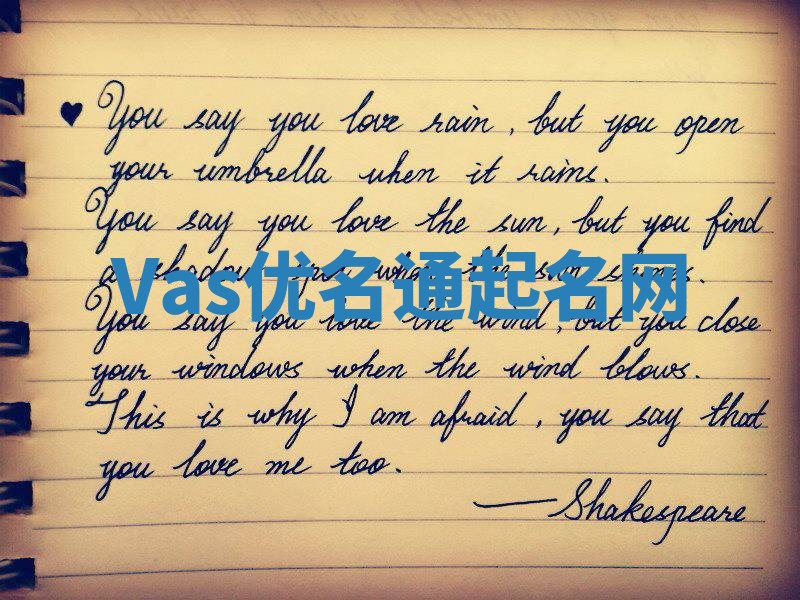 ♥ You say you love rain, but you open
your umbrella when it rains.
You say you love the sun, but you find
a shadow spot when the sun shines.
Vas优名通起名网
You say you love the wind, but you close
your windows when the wind blows.
This is why I am afraid, you say that
you love me too.
—Shakespeare